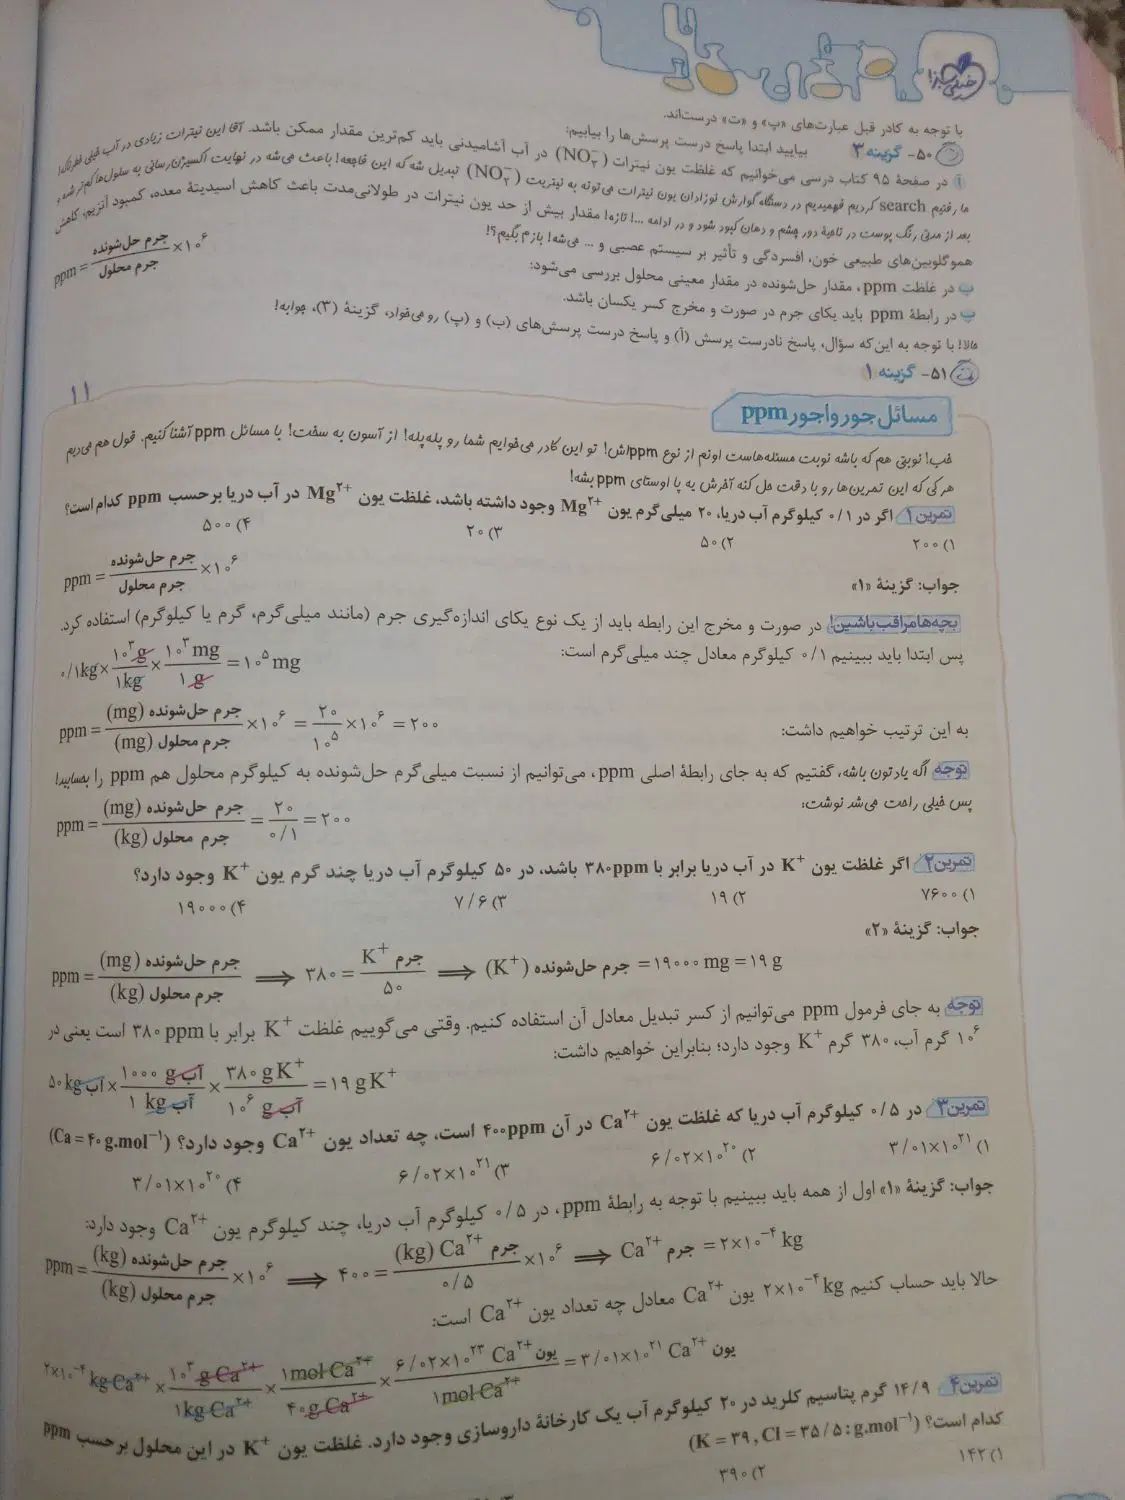 خیلی سبز!
با توجه به کادر قبل عبارت‌های «پ» و «ت» درست‌اند.
۵۰- گزینه ۳ بیایید ابتدا پاسخ درست پرسش‌ها را بیابیم:
آ در صفحهٔ ۹۵ کتاب درسی می‌خوانیم که غلظت یون نیترات (NO₃⁻) در آب آشامیدنی باید کم‌ترین مقدار ممکن باشد. آقا این نیترات زیادی در آب خیلی خطرناکه!
ما رفتیم search کردیم فهمیدیم در دستگاه گوارش نوزادان یون نیترات می‌تونه به نیتریت (NO₂⁻) تبدیل شه که این فاجعه! باعث می‌شه در نهایت اکسیژن‌رسانی به سلول‌ها کم‌تر شه و
بعد از مدتی رنگ پوست در ناحیهٔ دور چشم و دهان کبود شود و در ادامه ...! تازه! مقدار بیش از حد یون نیترات در طولانی‌مدت باعث کاهش اسیدیتهٔ معده، کمبود آنزیم، کاهش
هموگلوبین‌های طبیعی خون، افسردگی و تأثیر بر سیستم عصبی و ... می‌شه! بازم بگیم؟!
ب در غلظت ppm، مقدار حل‌شونده در مقدار معینی محلول بررسی می‌شود: ppm = جرم حل‌شونده / جرم محلول × ۱۰⁶
پ در رابطهٔ ppm باید یکای جرم در صورت و مخرج کسر یکسان باشد.
حالا! با توجه به این‌که سؤال، پاسخ نادرست پرسش (آ) و پاسخ درست پرسش‌های (ب) و (پ) رو می‌خواد، گزینهٔ (۳)، جوابه!
۵۱- گزینه ۱
۱۱
مسائل جور واجور ppm
خب! نوبتی هم که باشه نوبت مسئله‌هاست اونم از نوع ppmاش! تو این کادر می‌خوایم شما رو پله‌پله! از آسون به سخت! با مسائل ppm آشنا کنیم. قول هم می‌دیم
هر کی که این تمرین‌ها رو با دقت حل کنه آخرش یه پا اوستای ppm بشه!
تمرین ۱ اگر در ۰/۱ کیلوگرم آب دریا، ۲۰ میلی‌گرم یون Mg²⁺ وجود داشته باشد، غلظت یون Mg²⁺ در آب دریا برحسب ppm کدام است؟
۱) ۲۰۰ ۲) ۵۰ ۳) ۲۰ ۴) ۵۰۰
جواب: گزینهٔ «۱» ppm = جرم حل‌شونده / جرم محلول × ۱۰⁶
بچه‌ها مراقب باشین! در صورت و مخرج این رابطه باید از یک نوع یکای اندازه‌گیری جرم (مانند میلی‌گرم، گرم یا کیلوگرم) استفاده کرد.
پس ابتدا باید ببینیم ۰/۱ کیلوگرم معادل چند میلی‌گرم است: ۰/۱kg × ۱۰³ g / ۱kg × ۱۰³ mg / ۱ g = ۱۰⁵ mg
به این ترتیب خواهیم داشت: ppm = جرم حل‌شونده (mg) / جرم محلول (mg) × ۱۰⁶ = ۲۰ / ۱۰⁵ × ۱۰⁶ = ۲۰۰
توجه اگه یادتون باشه، گفتیم که به جای رابطهٔ اصلی ppm، می‌توانیم از نسبت میلی‌گرم حل‌شونده به کیلوگرم محلول هم ppm را به‌حسابید!
پس خیلی راحت می‌شد نوشت: ppm = جرم حل‌شونده (mg) / جرم محلول (kg) = ۲۰ / ۰/۱ = ۲۰۰
تمرین ۲ اگر غلظت یون K⁺ در آب دریا برابر با ۳۸۰ppm باشد، در ۵۰ کیلوگرم آب دریا چند گرم یون K⁺ وجود دارد؟
۱) ۷۶۰۰ ۲) ۱۹ ۳) ۷/۶ ۴) ۱۹۰۰۰
جواب: گزینهٔ «۲»
ppm = جرم حل‌شونده (mg) / جرم محلول (kg) ⟹ ۳۸۰ = جرم K⁺ / ۵۰ ⟹ جرم حل‌شونده (K⁺) = ۱۹۰۰۰ mg = ۱۹ g
توجه به جای فرمول ppm می‌توانیم از کسر تبدیل معادل آن استفاده کنیم. وقتی می‌گوییم غلظت K⁺ برابر با ۳۸۰ ppm است یعنی در
۱۰⁶ گرم آب، ۳۸۰ گرم K⁺ وجود دارد؛ بنابراین خواهیم داشت:
۵۰ kg آب × ۱۰۰۰ g آب / ۱ kg آب × ۳۸۰ g K⁺ / ۱۰⁶ g آب = ۱۹ g K⁺
تمرین ۳ در ۰/۵ کیلوگرم آب دریا که غلظت یون Ca²⁺ در آن ۴۰۰ppm است، چه تعداد یون Ca²⁺ وجود دارد؟ (Ca = ۴۰ g.mol⁻¹)
۱) ۳/۰۱×۱۰²¹ ۲) ۶/۰۲×۱۰²⁰ ۳) ۶/۰۲×۱۰²¹ ۴) ۳/۰۱×۱۰²⁰
جواب: گزینهٔ «۱» اول از همه باید ببینیم با توجه به رابطهٔ ppm، در ۰/۵ کیلوگرم آب دریا، چند کیلوگرم یون Ca²⁺ وجود دارد:
ppm = جرم حل‌شونده (kg) / جرم محلول (kg) × ۱۰⁶ ⟹ ۴۰۰ = جرم Ca²⁺ (kg) / ۰/۵ × ۱۰⁶ ⟹ جرم Ca²⁺ = ۲×۱۰⁻⁴ kg
حالا باید حساب کنیم ۲×۱۰⁻⁴ kg یون Ca²⁺ معادل چه تعداد یون Ca²⁺ است:
۲×۱۰⁻⁴ kg Ca²⁺ × ۱۰³ g Ca²⁺ / ۱kg Ca²⁺ × ۱mol Ca²⁺ / ۴۰ g Ca²⁺ × ۶/۰۲×۱۰²³ یون Ca²⁺ / ۱mol Ca²⁺ = ۳/۰۱×۱۰²¹ یون Ca²⁺
تمرین ۴ ۱۴/۹ گرم پتاسیم کلرید در ۲۰ کیلوگرم آب یک کارخانهٔ داروسازی وجود دارد. غلظت یون K⁺ در این محلول برحسب ppm
کدام است؟ (K = ۳۹, Cl = ۳۵/۵ : g.mol⁻¹)
۱) ۱۴۲ ۲) ۳۹۰